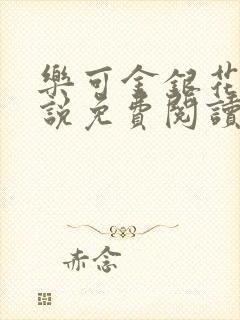 樂可金銀花
說免費閱讀
赤念